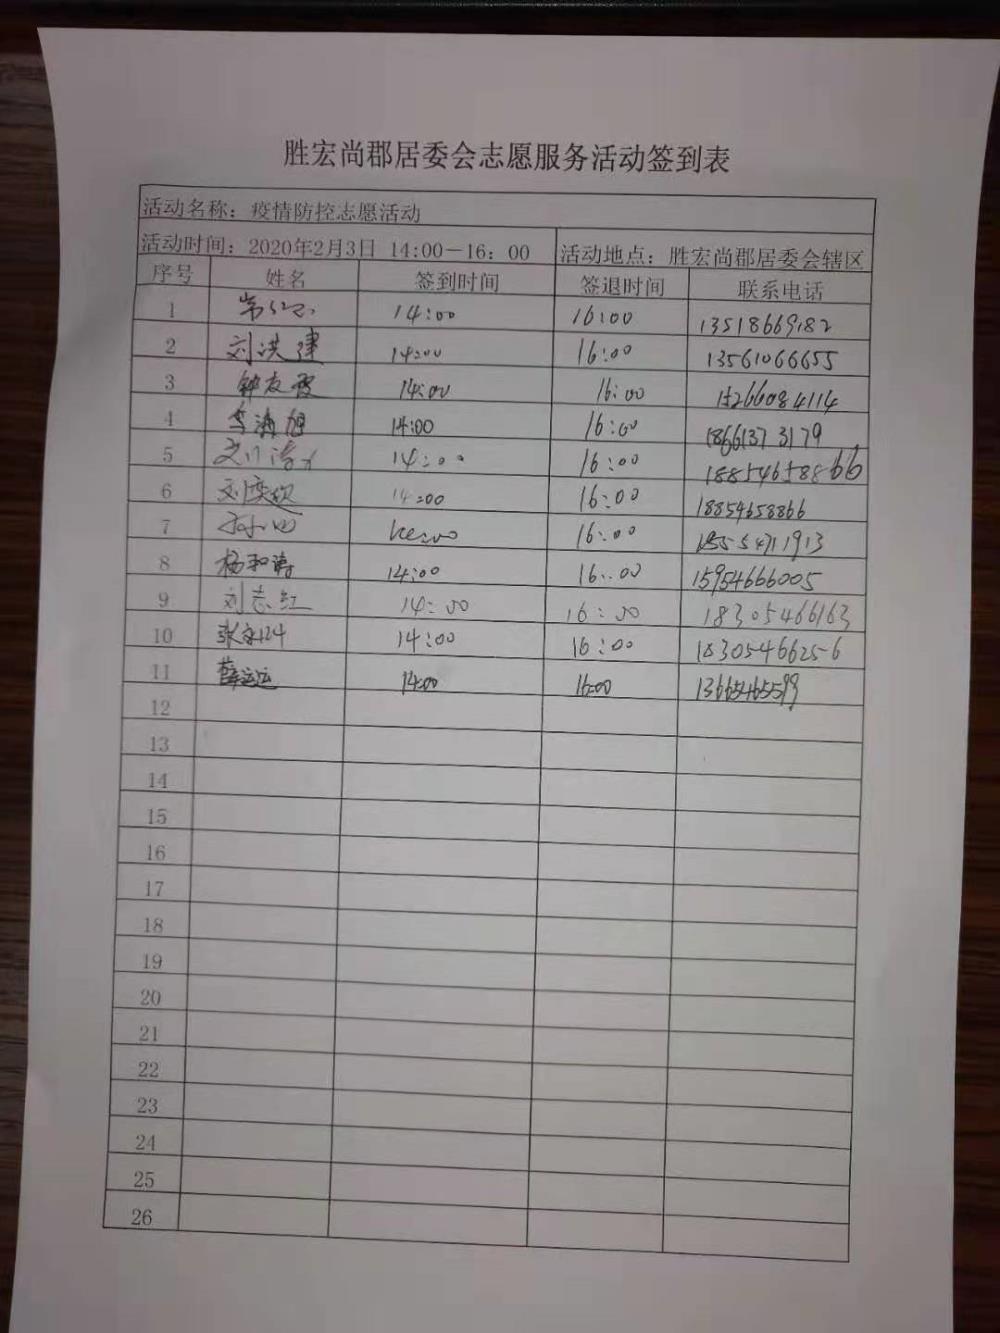 胜宏尚郡居委会志愿服务活动签到表
活动名称：疫情防控志愿活动
活动时间：2020年2月3日 14:00－16：00 活动地点：胜宏尚郡居委会辖区
序号 姓名 签到时间 签退时间 联系电话
1 14:00 16:00 13518669182
2 刘洪建 14:00 16:00 13561066655
3 钟友霞 14:00 16:00 15266084114
4 李海旭 14:00 16:00 18661373179
5 14:00 16:00 18854658866
6 刘奕欣 14:00 16:00 18854658866
7 16:00
8 杨和涛 14:00 16:00 15954666005
9 刘志红 14:00 16:00 18305466163
10 14:00 16:00 18305466256
11 薛运运 14:00 16:00 13665465599
12
13
14
15
16
17
18
19
20
21
22
23
24
25
26